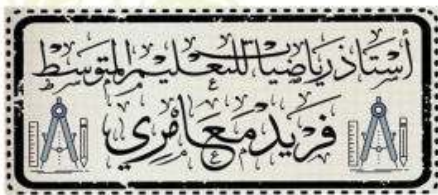 أستاذ رياضيات للتعليم المتوسط
فريد معامري